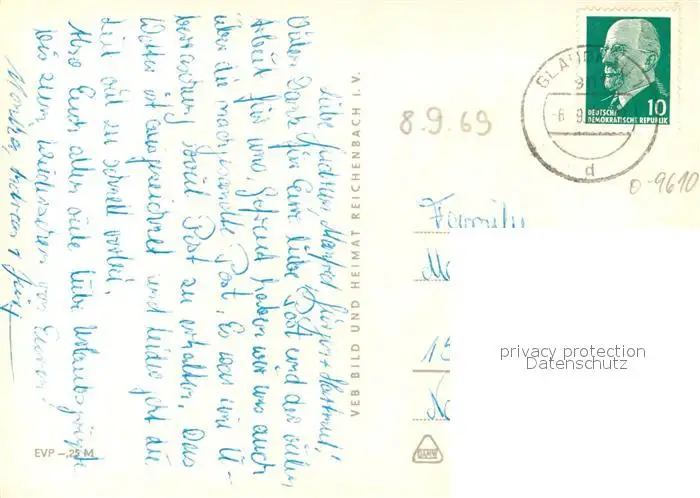 Vielen Dank für Eure liebe Post und die vielen
Arbeit für uns. Gefreut haben wir uns auch
über die nachgesandte Post. Es war eine Ü-
berraschung soviel Post zu erhalten. Das
Wetter ist ausgezeichnet und leider geht die
Zeit viel zu schnell vorbei.
Also Euch allen viele liebe Urlaubsgrüße
bis zum Wiedersehen von Euren
VEB BILD UND HEIMAT REICHENBACH I. V.
EVP –,25 M
GLAUCHAU
d
DEUTSCHE
DEMOKRATISCHE REPUBLIK
10
8.9.69
D-9610
Familie
15
privacy protection
Datenschutz